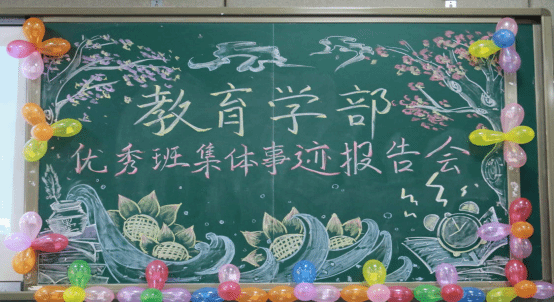 教育学部
优秀班集体事迹报告会